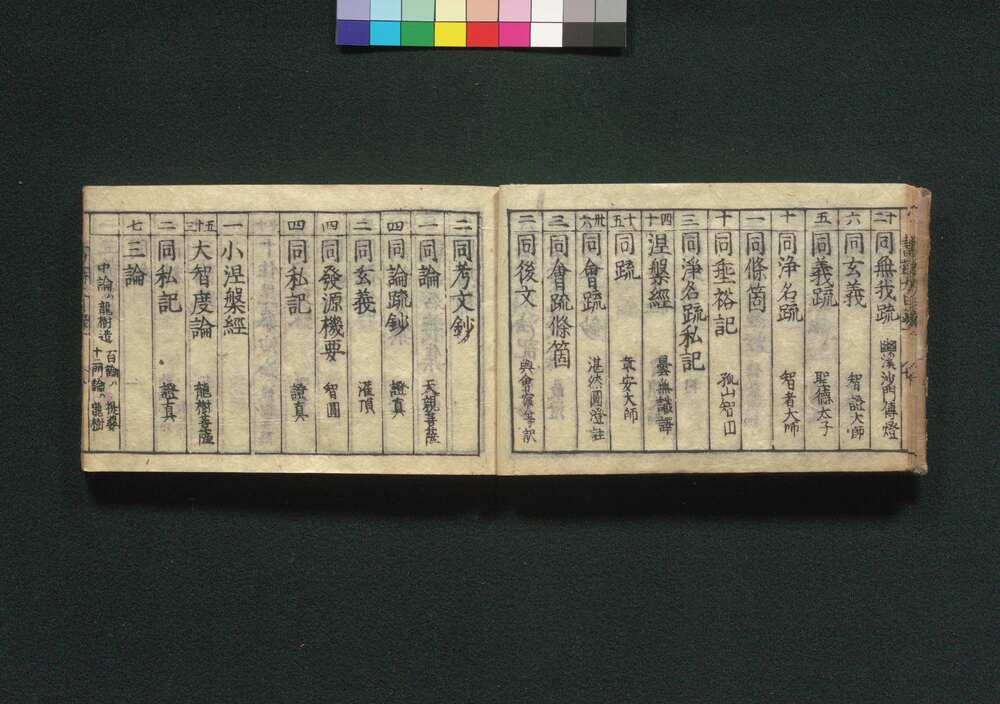 二十 同無我疏 幽溪沙門傳燈
六 同玄義 智證大師
五 同義疏 聖德太子
十 同淨名疏 智者大師
一 同條箇
十 同垂裕記 孤山智円
三 同淨名疏私記
四十 涅槃經 曇無讖譯
十五 同疏 章安大師
卅六 同會疏 湛然圓澄註
三 同會疏條箇
二 同後文 與會寧等訳
二 同考文鈔
一 同論 天親菩薩
四 同論疏鈔 證真
二 同玄義 灌頂
四 同發源機要 智圓
四 同私記 證真
一 小涅槃經
五十三 大智度論 龍樹菩薩
二 同私記 證真
七 三論
中論ハ龍樹造 百論ハ提婆
十二門論ハ龍樹